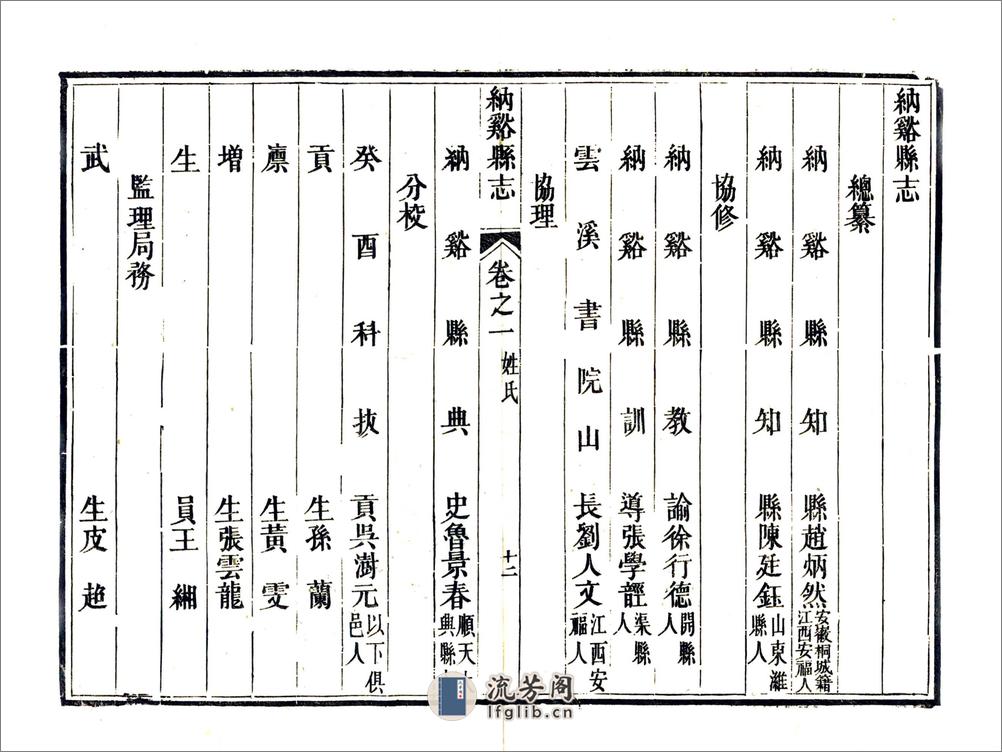 納谿縣志
總纂
納谿縣知縣趙炳然安徽桐城籍江西安福人
納谿縣知縣陳廷鈺山東濰縣人
協修
納谿縣教諭徐行德開縣人
納谿縣訓導張學誙渠縣人
雲溪書院山長劉人文江西安福人
協理
納谿縣志 卷之一 姓氏 十二
納谿縣典史魯景春順天大興縣
分校
癸酉科拔貢吳澍元以下俱邑人
貢生孫蘭
廩生黃雯
增生張雲龍
生員王緗
監理局務
武生皮超
流芳阁
lfglib.cn